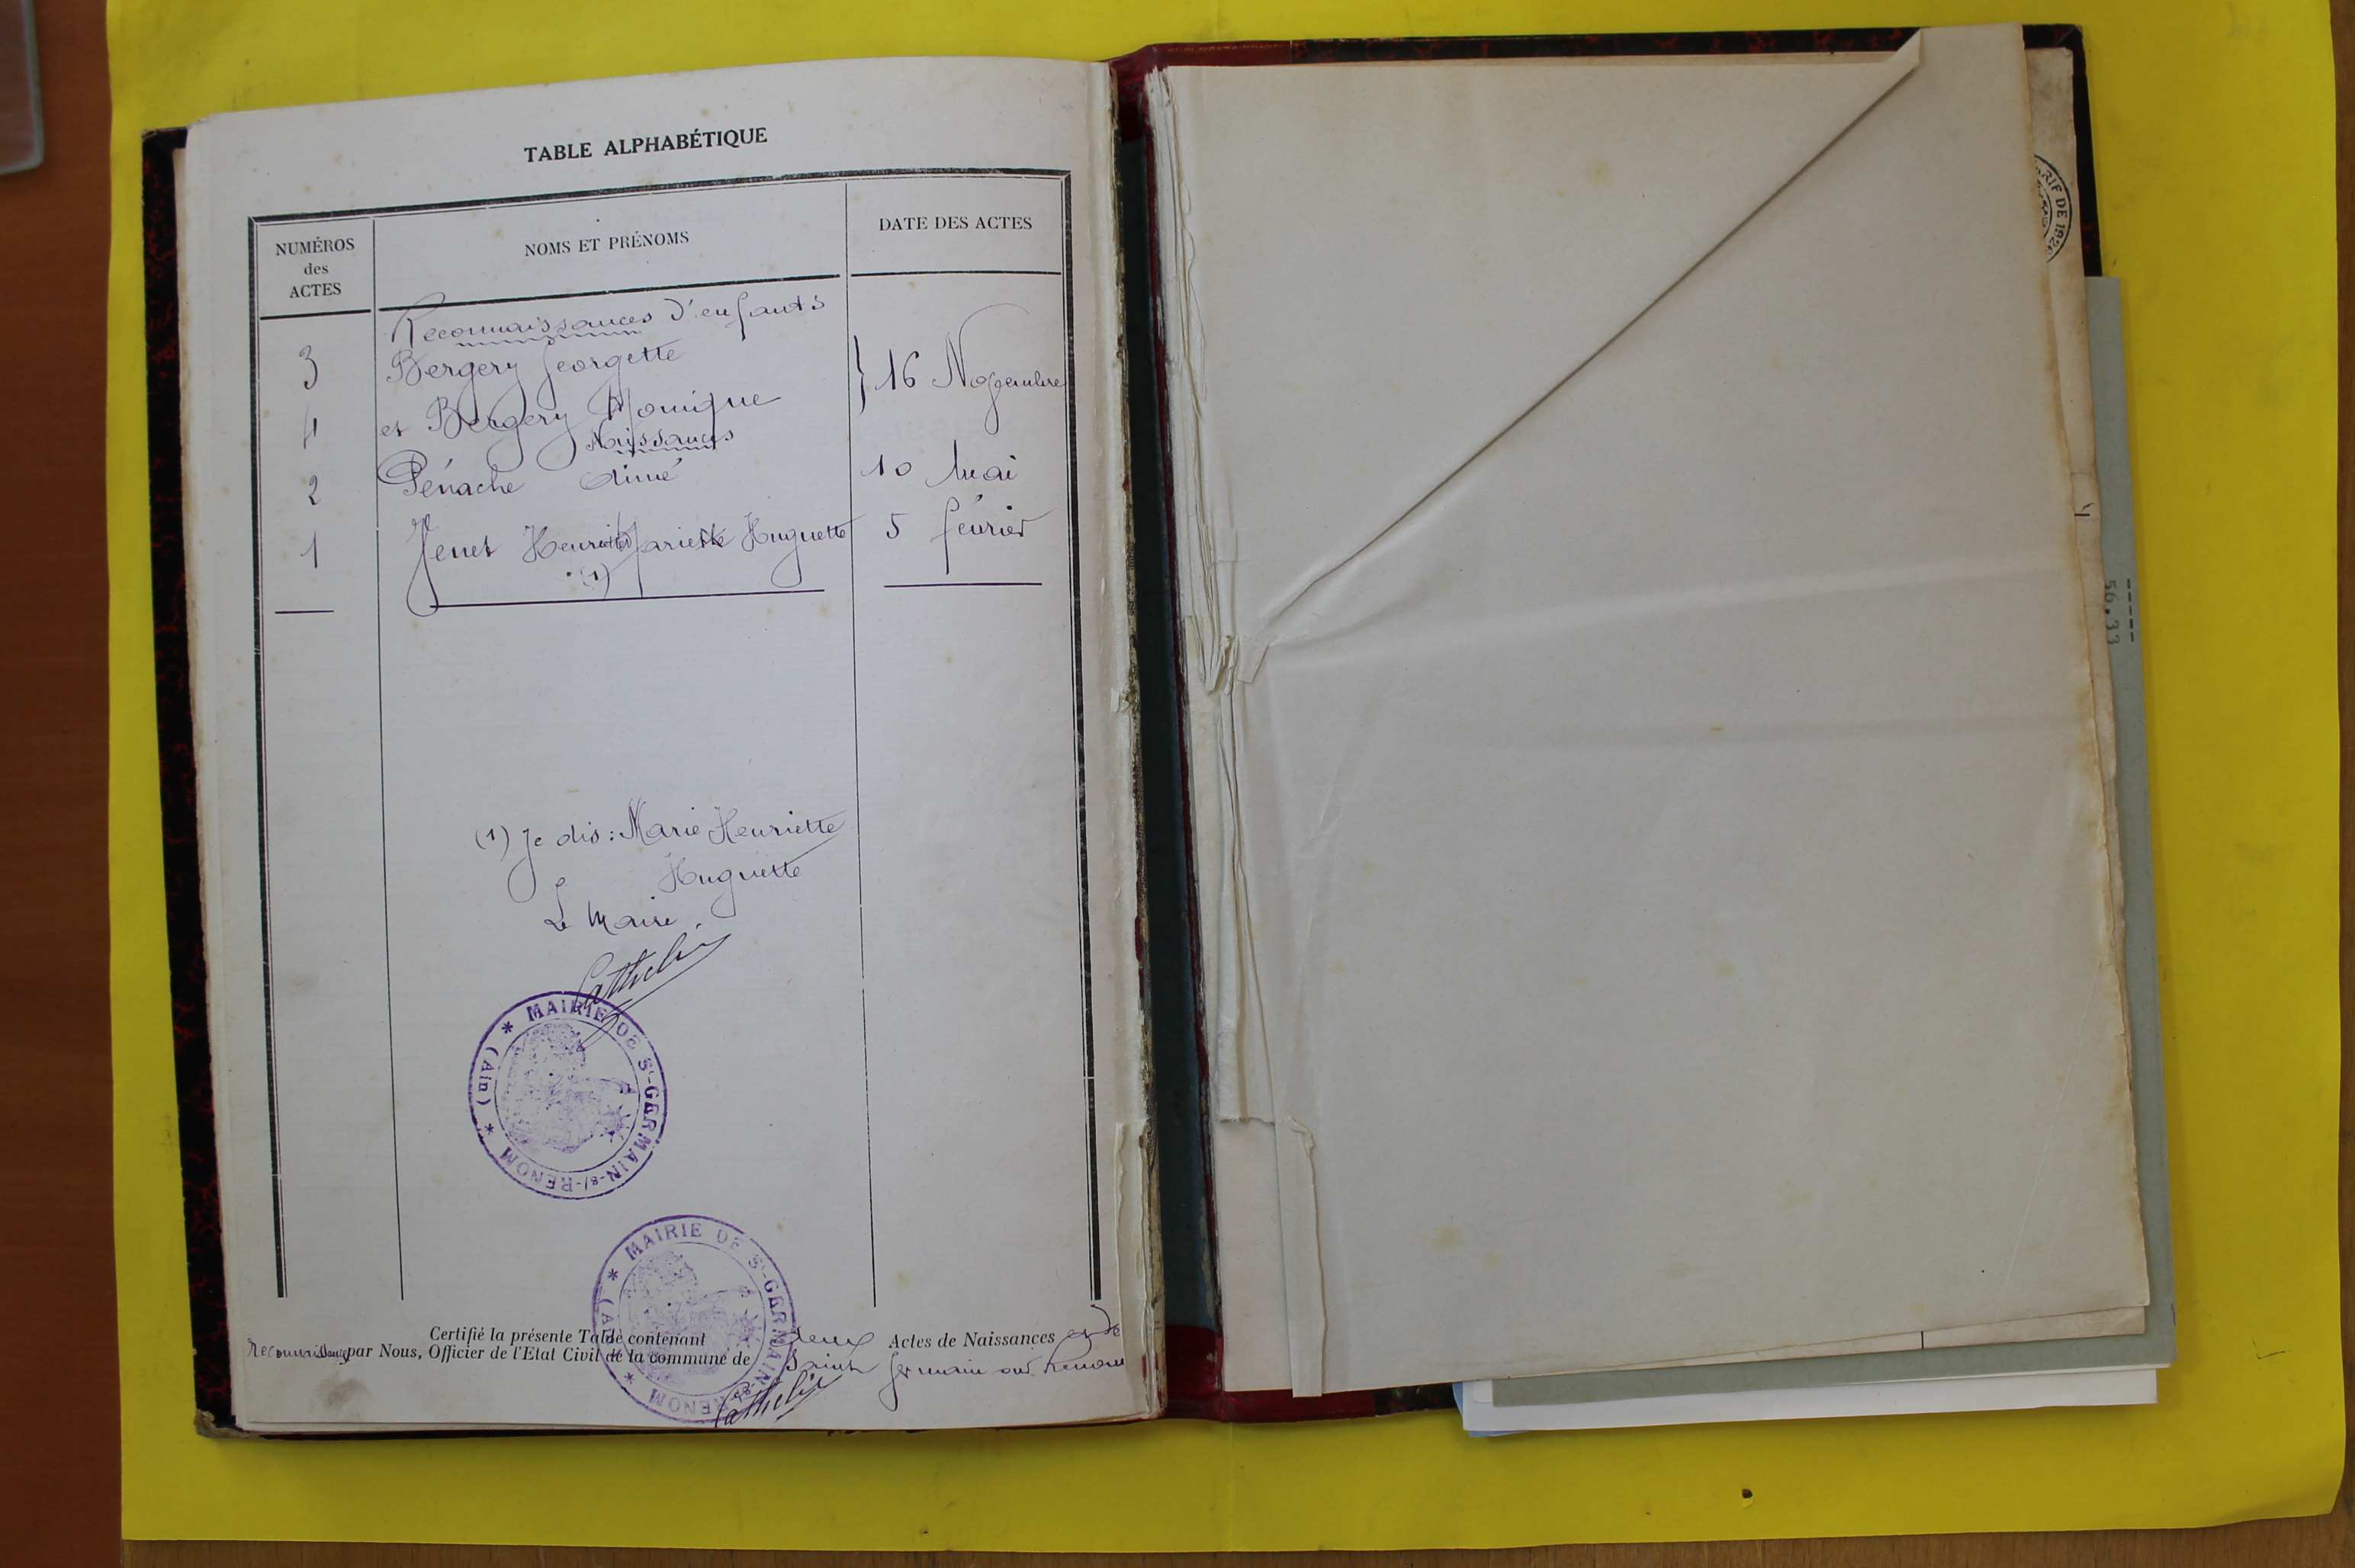 TABLE ALPHABÉTIQUE
NUMÉROS
des
ACTES
NOMS ET PRÉNOMS
DATE DES ACTES
Reconnaissances d'enfants
3 Bergery Georgette
} 16 Novembre
4 et Bergery Monique
Naissances
2 Pénache Aimé 10 Mai
1 Jenet Henriette Mariette Huguette 5 février
(1)
(1) Je dis : Marie Henriette
Huguette
Le Maire
MAIRIE DE St-GERMAIN-s/-RENOM * (Ain) *
MAIRIE DE St-GERMAIN-s/-RENOM
Certifié la présente Table contenant deux Actes de Naissances et de
reconnaissances par Nous, Officier de l'Etat Civil de la commune de Saint Germain sur Renom
RIF DE 192
56.33